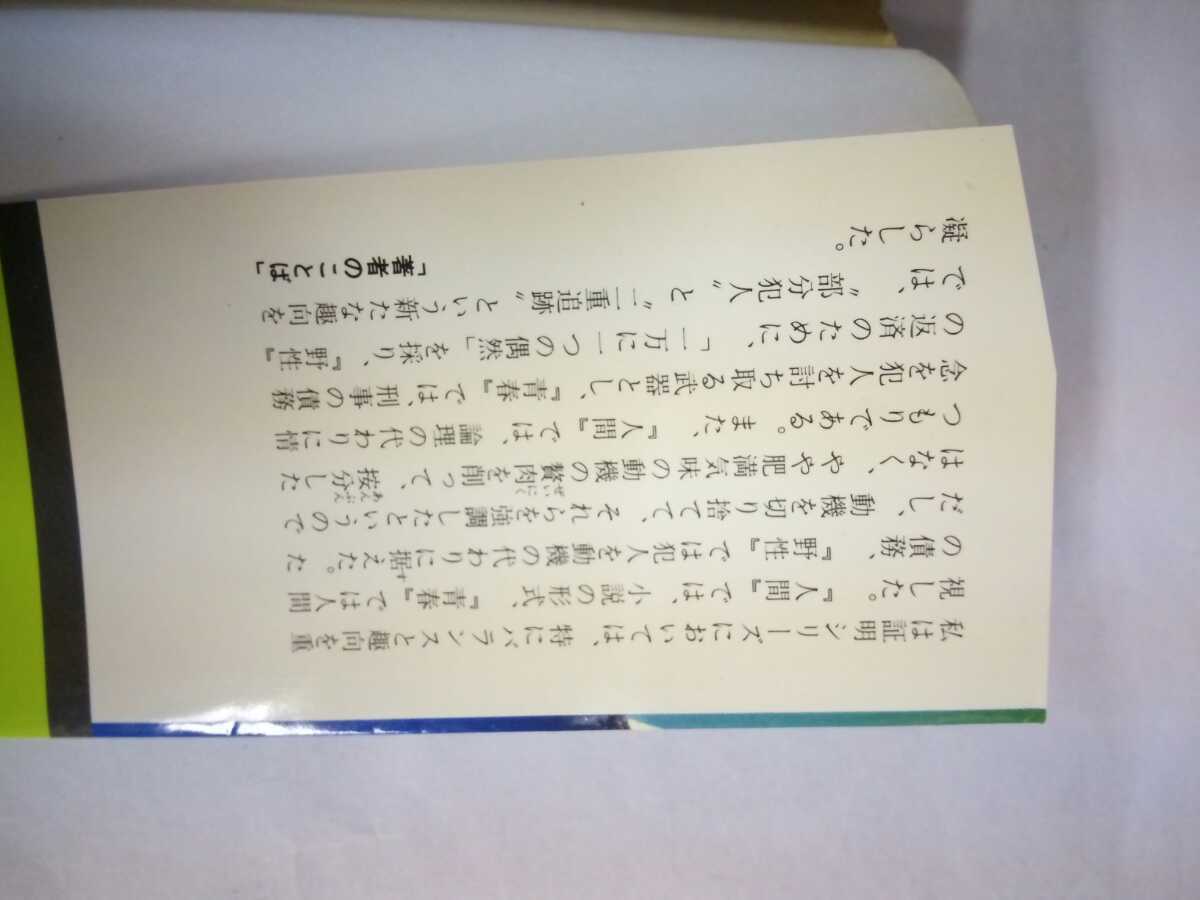 私は証明シリーズにおいては、特にバランスと趣向を重
視した。『人間』では、小説の形式、『青春』では人間
の債務、『野性』では犯人を動機の代わりに据えた。た
だし、動機を切り捨てて、それらを強調したというので
はなく、やや肥満気味の動機の贅肉を削って、按分した
つもりである。また、『人間』では、論理の代わりに情
念を犯人を討ち取る武器とし、『青春』では、刑事の債務
の返済のために、「一万に一つの偶然」を採り、『野性』
では、〝部分犯人〟と〝二重追跡〟という新たな趣向を
凝らした。
「著者のことば」